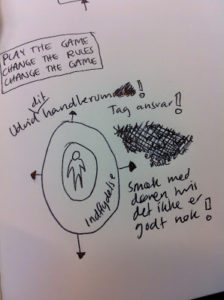 PLAY THE GAME
CHANGE THE RULES
CHANGE THE GAME
Udvid dit handlerum!
Tag ansvar!
Indflydelse
Smæk med
døren hvis
det ikke er
godt nok!